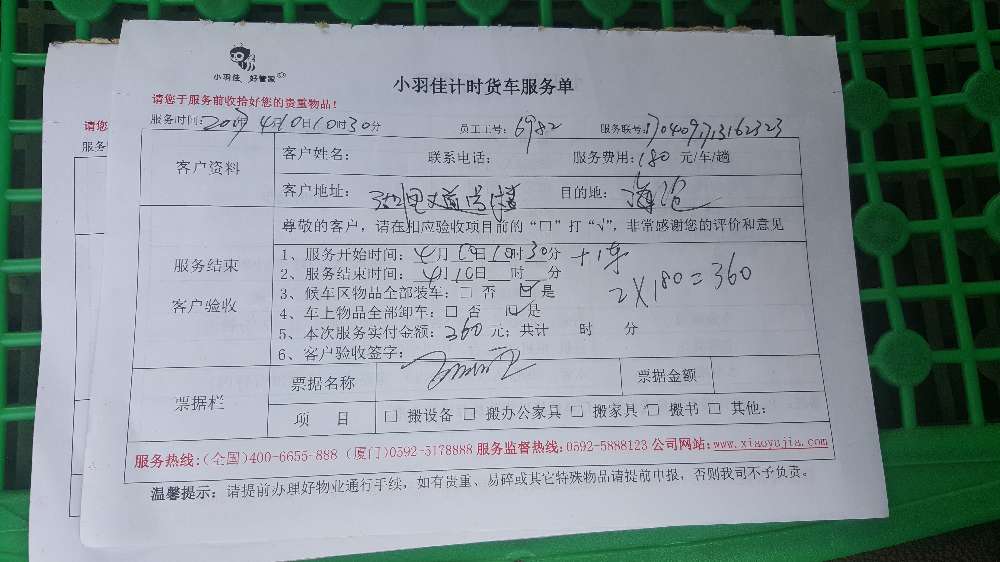 小羽佳 好管家
小羽佳计时货车服务单
请您于服务前收拾好您的贵重物品！
服务时间: 4月10日10时30分 员工工号: 6982 服务联号: 170409713162323
客户资料
客户姓名: 联系电话: 服务费用: 180 元/车/趟
客户地址: 目的地: 海沧
尊敬的客户，请在相应验收项目前的“口”打“√”，非常感谢您的评价和意见
服务结束
客户验收
1、服务开始时间: 4月10日10时30分 +1车
2、服务结束时间: 4月10日 时 分 2×180=360
3、候车区物品全部装车: □ 否 ☑ 是
4、车上物品全部卸车: □ 否 ☑ 是
5、本次服务实付金额: 360 元; 共计 时 分
6、客户验收签字:
票据栏
票据名称 票据金额
项 目 □ 搬设备 □ 搬办公家具 □ 搬家具 □ 搬书 □ 其他:
服务热线:(全国)400-6655-888 (厦门)0592-5178888 服务监督热线:0592-5888123 公司网站:www.xiaoyujia.com
温馨提示: 请提前办理好物业通行手续，如有贵重、易碎或其它特殊物品请提前申报，否则我司不予负责。
请您
服务